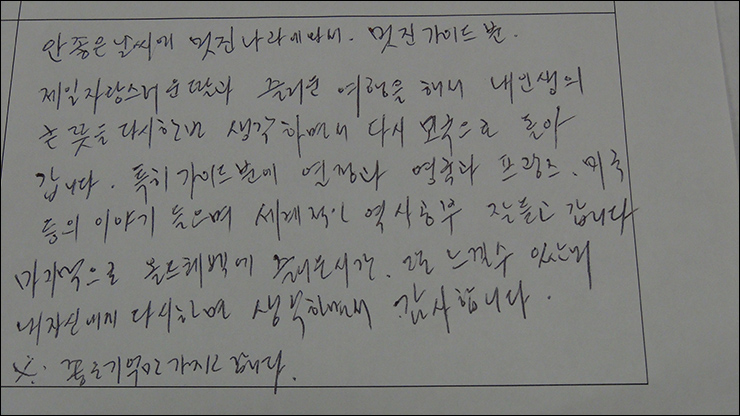 안 좋은 날씨에 멋진 나라에 와서. 멋진 가이드 분.
제일 자랑스러운 딸과 즐거운 여행을 해서 내 인생의
큰 뜻을 다시한번 생각하면서 다시 모국으로 돌아
갑니다. 특히 가이드 분에 열정과 영국과 프랑스. 미국
등의 이야기 들으며 세계적인 역사공부 잘 듣고 갑니다
마지막으로 올드퀘백에 즐거운시간. 느낄수 있는
내자신에게 다시하며 생각하면서 감사합니다.
※. 좋은기억만 가지고 갑니다.